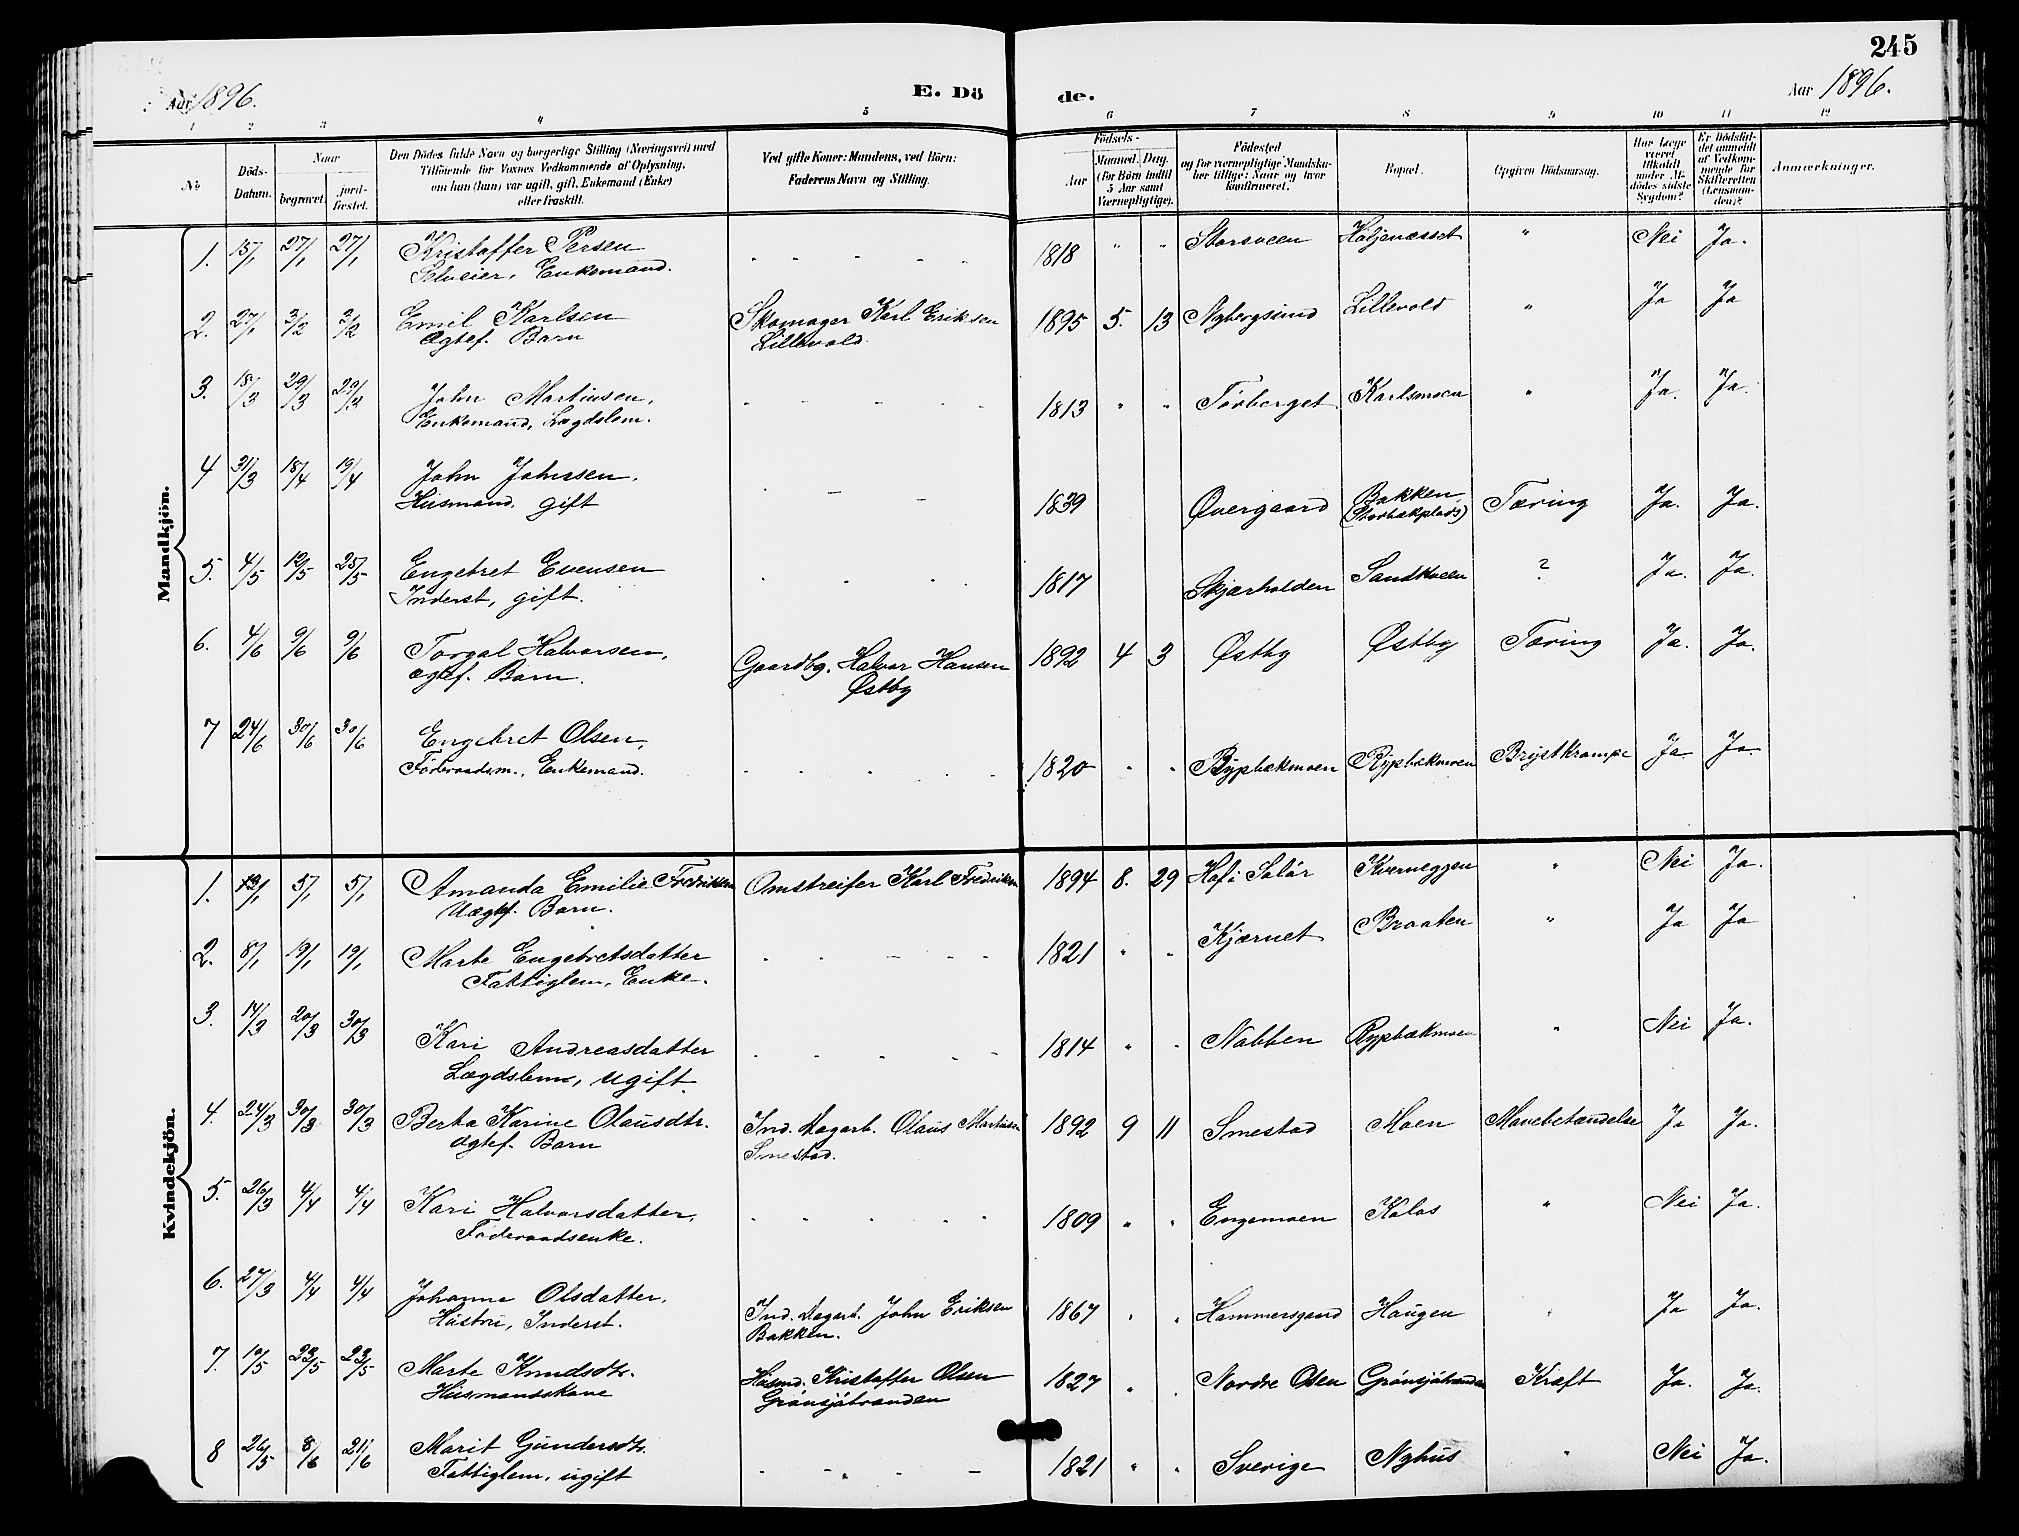 245
Aar 1896.
E. Dö
de.
Aar 1896.
1 2 3 4 5 6 7 8 9 10 11 12
No
Döds-Datum.
Naar
begravet.
jord-fæstet.
Den Dödes fulde Navn og borgerlige Stilling (Næringsvei) med
Tilföiende for Voxnes Vedkommende af Oplysning,
om han (hun) var ugift, gift, Enkemand (Enke)
eller fraskilt.
Ved gifte Koner: Mandens, ved Börn:
Faderens Navn og Stilling.
Födsels-
Aar
Maaned. Dag.
(for Börn indtil
5 Aar samt
Værnepligtige).
Födested
og for værnepligtige Mandska-
ber tillige: Naar og hvor
konfirmeret.
Bopæl.
Opgiven Dödsaarsag.
Har Læge
været
tilkaldt
under Af-
dödes sidste
Sygdom?
Er Dödsfal-
det anmeldt
af Vedkom-
mende for
Skifteretten
(Lensman-
den)?
Anmærkninger.
Mandkjön.
1. 15/1 27/1 27/1 Kristoffer Persen 1818 " " Storsveen Höljenæsset " Nei Ja.
Selveier, Enkemand.
2. 27/1 3/2 3/2 Emil Karlsen Skomager Karl Eriksen 1895 5. 13 Nybergsund Lillevold " Ja Ja
Ægtef. Barn Lillevold.
3. 18/3 29/3 29/3 John Martinsen, 1813 " " Törberget Karlsmoen " Ja. Ja.
Enkemand, Lægdslem.
4 31/3 18/4 19/4 John Johnsen, 1839 Øvergaard Bakken Tæring Ja. Ja.
Husmand, gift (Storbækplads)
5. 4/5 12/5 25/5 Engebret Evensen 1817 Skjærholden Sandkveen ? Ja. Ja.
Inderst, gift.
6. 4/6 9/6 9/6 Torgal Halvorsen, Gaardbg. Halvor Hansen 1892 4 3 Østby Østby Tæring Ja. Ja.
ægtef. Barn. Østby
7 24/6 30/6 30/6 Engebret Olsen, 1820 " " Rypbækmoen Rypbækmoen Brystkrampe Ja. Ja.
Föderaadsm., Enkemand.
Kvindekjön.
1. 5/1 5/1 Amanda Emilie Fredriksen Omstreifer Karl Fredriksen 1894 8. 29 Hof i Solör Kverneggen " Nei Ja.
Uægtef. Barn.
2. 8/1 19/1 19/1 Marte Engebretsdatter 1821 " " Kjærnet Braaten " Ja Ja
Fattiglem, Enke.
3. 14/3 20/3 30/3 Kari Andreasdatter 1814 " " Nabben Rypbækmoen " Nei Ja.
Lægdslem, ugift.
4. 24/3 30/3 30/3 Berta Karine Olausdtr. Ind. Dagarb. Olaus Martinsen 1892 9 11 Smestad Moen Mavebetændelse Ja Ja.
Ægtef. Barn Smestad.
5. 26/3 4/4 4/4 Kari Halvorsdatter, 1809 " " Engemoen Kolos " Nei Ja.
Föderaadsenke.
6. 27/3 4/4 4/4 Johanne Olsdatter, Ind. Dagarb. John Eriksen 1867 " " Hammersgaard Haugen " Ja Ja.
Hustru, Inderst. Bakken.
7. 10/5 23/5 23/5 Marte Knudsdtr. Husmd. Kristoffer Olsen 1827 " " Nordre Osen Grönsjöbranden Kræft Ja. Ja.
Husmandskone Grönsjöbranden
8 26/5 8/6 21/6 Marit Gundersdtr. 1821 " " Sverige Nyhus " Nei Ja.
Fattiglem, ugift